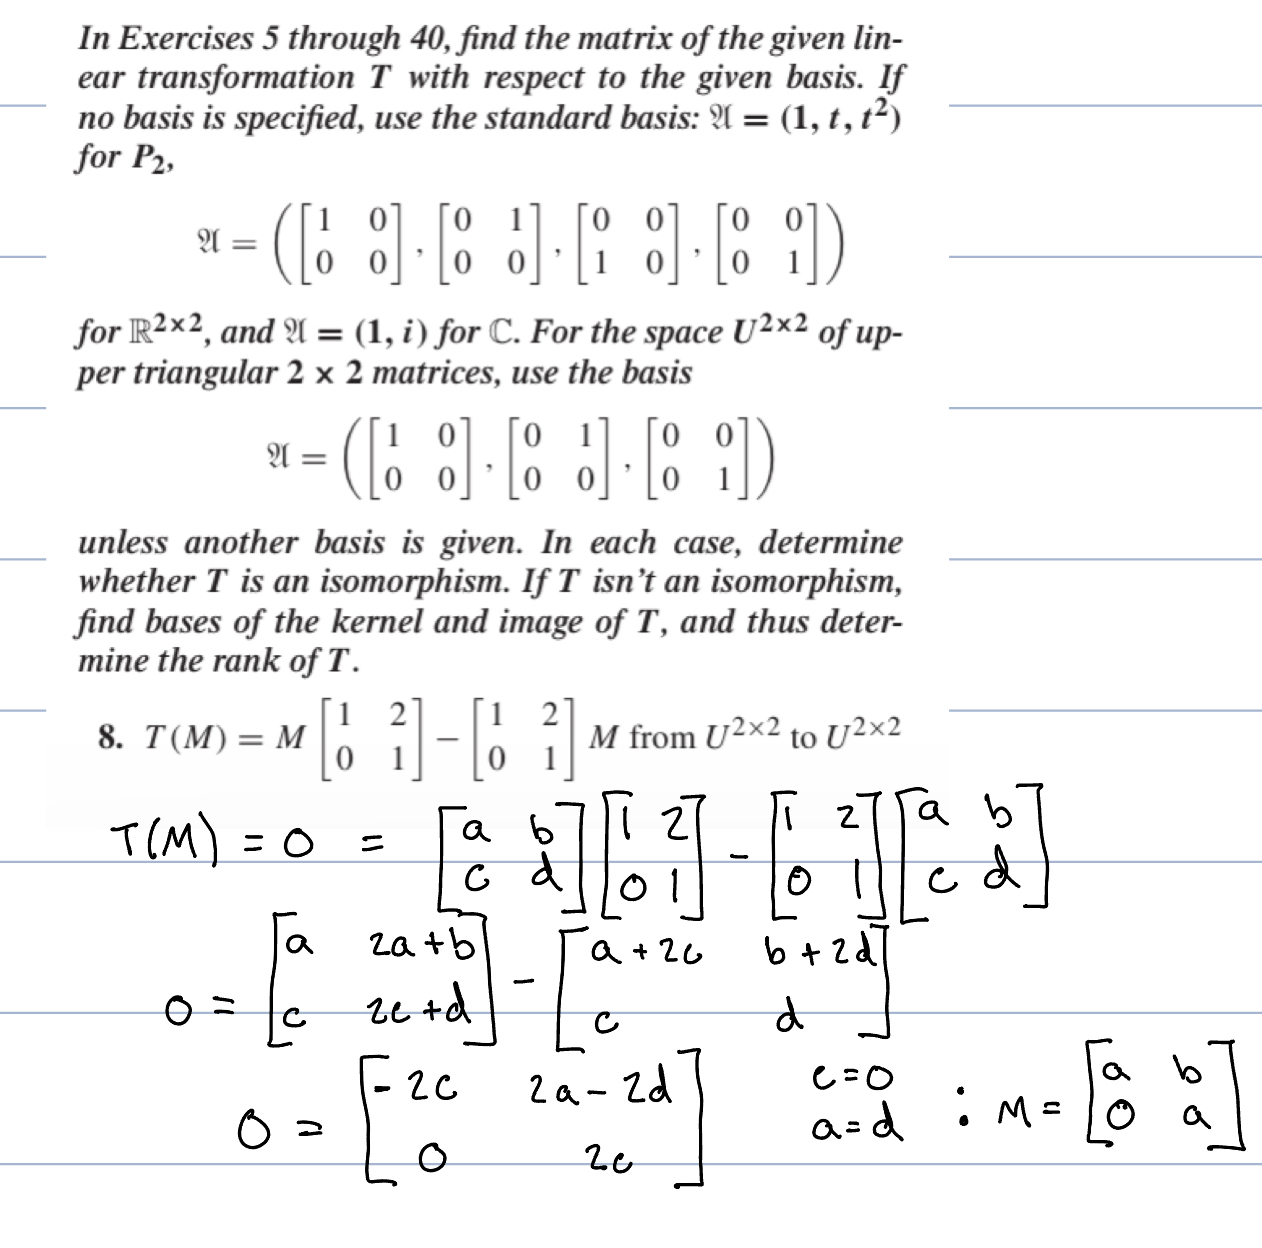 In Exercises 5 through 40, find the matrix of the given lin-
ear transformation T with respect to the given basis. If
no basis is specified, use the standard basis: 𝔄 = (1, t, t²)
for P₂,
𝔄 = ([1 0; 0 0], [0 1; 0 0], [0 0; 1 0], [0 0; 0 1])
for ℝ²ˣ², and 𝔄 = (1, i) for ℂ. For the space U²ˣ² of up-
per triangular 2 × 2 matrices, use the basis
𝔄 = ([1 0; 0 0], [0 1; 0 0], [0 0; 0 1])
unless another basis is given. In each case, determine
whether T is an isomorphism. If T isn't an isomorphism,
find bases of the kernel and image of T, and thus deter-
mine the rank of T.
8. T(M) = M [1 2; 0 1] − [1 2; 0 1] M from U²ˣ² to U²ˣ²
T(M) = 0 = [a b; c d] [1 2; 0 1] - [1 2; 0 1] [a b; c d]
0 = [a 2a+b; c 2c+d] - [a+2c b+2d; c d]
0 = [-2c 2a-2d; 0 2c] c=0 a=d : M = [a b; 0 a]